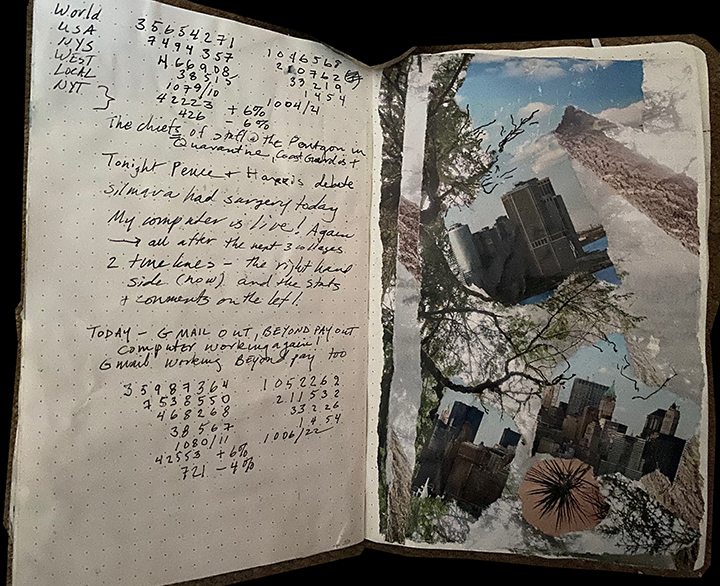 World 35654271 1046568
USA 7494357 210762
NYS 466908 33219
WEST 38515 1454
LOCAL 1079/10 1004/21
NYT } 42223 +6%
426 -6%
The chiefs of staff @ the Pentagon in
Quarantine, Coast Guard is +
Tonight Pence + Harris debate
Silmara had surgery today
My computer is live! Again
→ all after the next 3 collages
2 timelines – the right hand
side (now) and the stats
+ comments on the left!
TODAY – GMAIL OUT, BEYOND PAY OUT
Computer working again!
Gmail working Beyond pay too
35987364 1052269
7538550 211532
468268 33226
38567 1454
1080/11 1006/22
42553 +6%
721 -4%